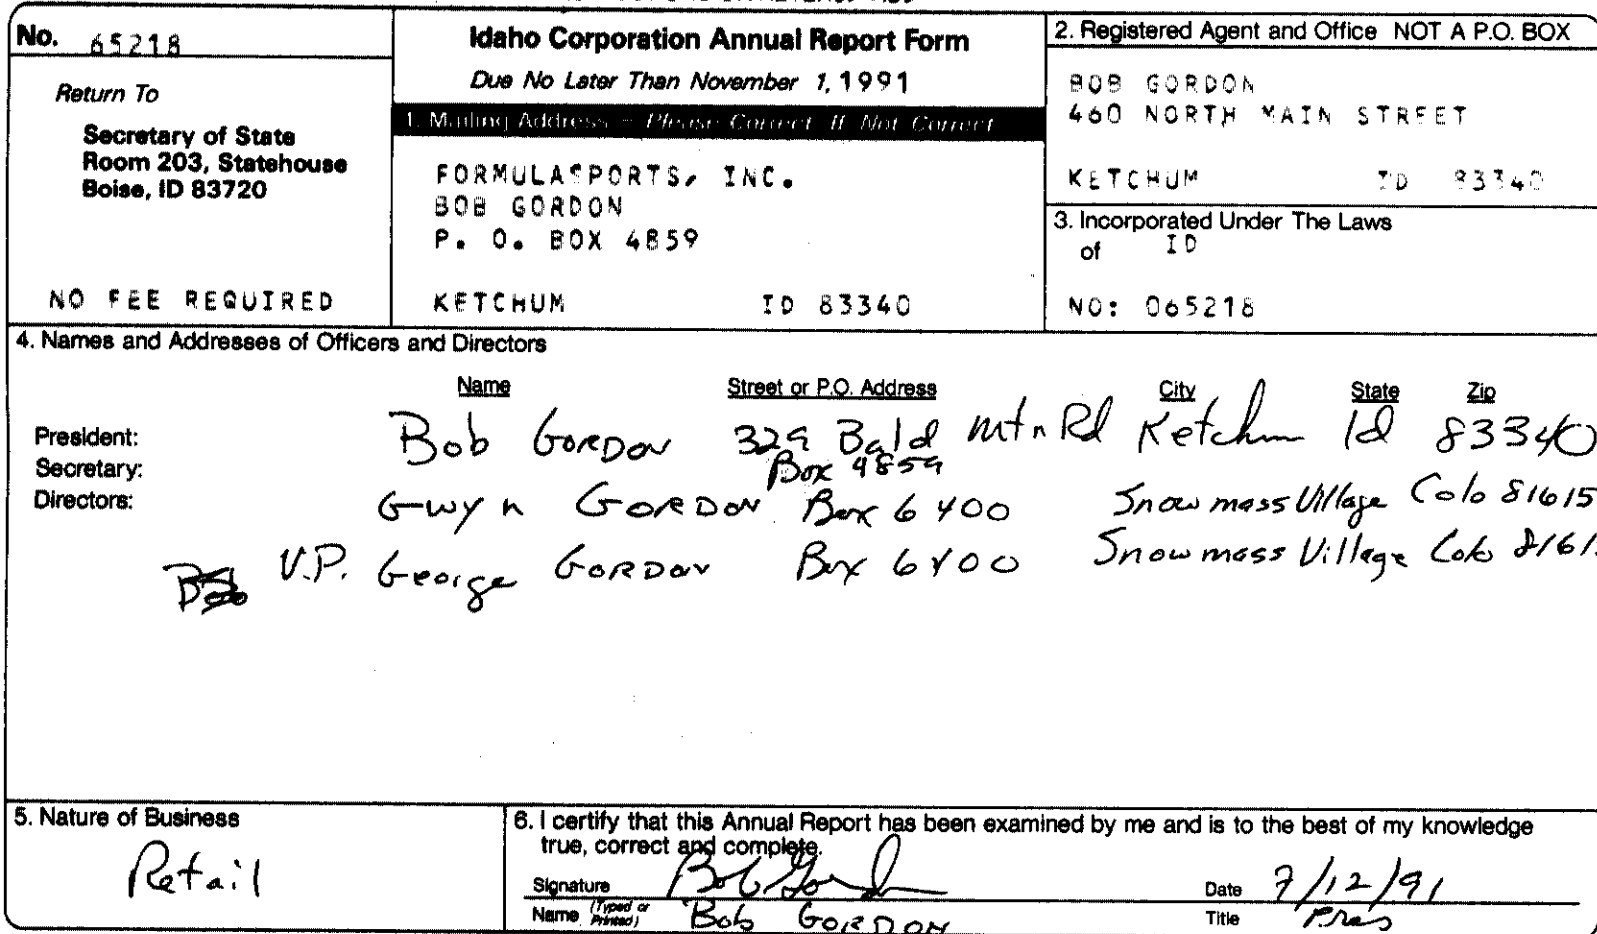 No. 65218
Return To
Secretary of State
Room 203, Statehouse
Boise, ID 83720
NO FEE REQUIRED
Idaho Corporation Annual Report Form
Due No Later Than November 1, 1991
1. Mailing Address - Please Correct If Not Correct
FORMULASPORTS, INC.
BOB GORDON
P. O. BOX 4859
KETCHUM ID 83340
2. Registered Agent and Office NOT A P.O. BOX
BOB GORDON
460 NORTH MAIN STREET
KETCHUM ID 83340
3. Incorporated Under The Laws
of ID
NO: 065218
4. Names and Addresses of Officers and Directors
Name Street or P.O. Address City State Zip
President: Bob GORDON 329 Bald Mtn Rd Ketchum Id 83340
Secretary: Box 4859
Directors: Gwyn GORDON Box 6400 Snowmass Village Colo 81615
V.P. George GORDON Box 6400 Snowmass Village Colo 8161
5. Nature of Business
Retail
6. I certify that this Annual Report has been examined by me and is to the best of my knowledge
true, correct and complete.
Signature Bob Gordon Date 7/12/91
Name (Typed or Printed) Bob GORDON Title Pres